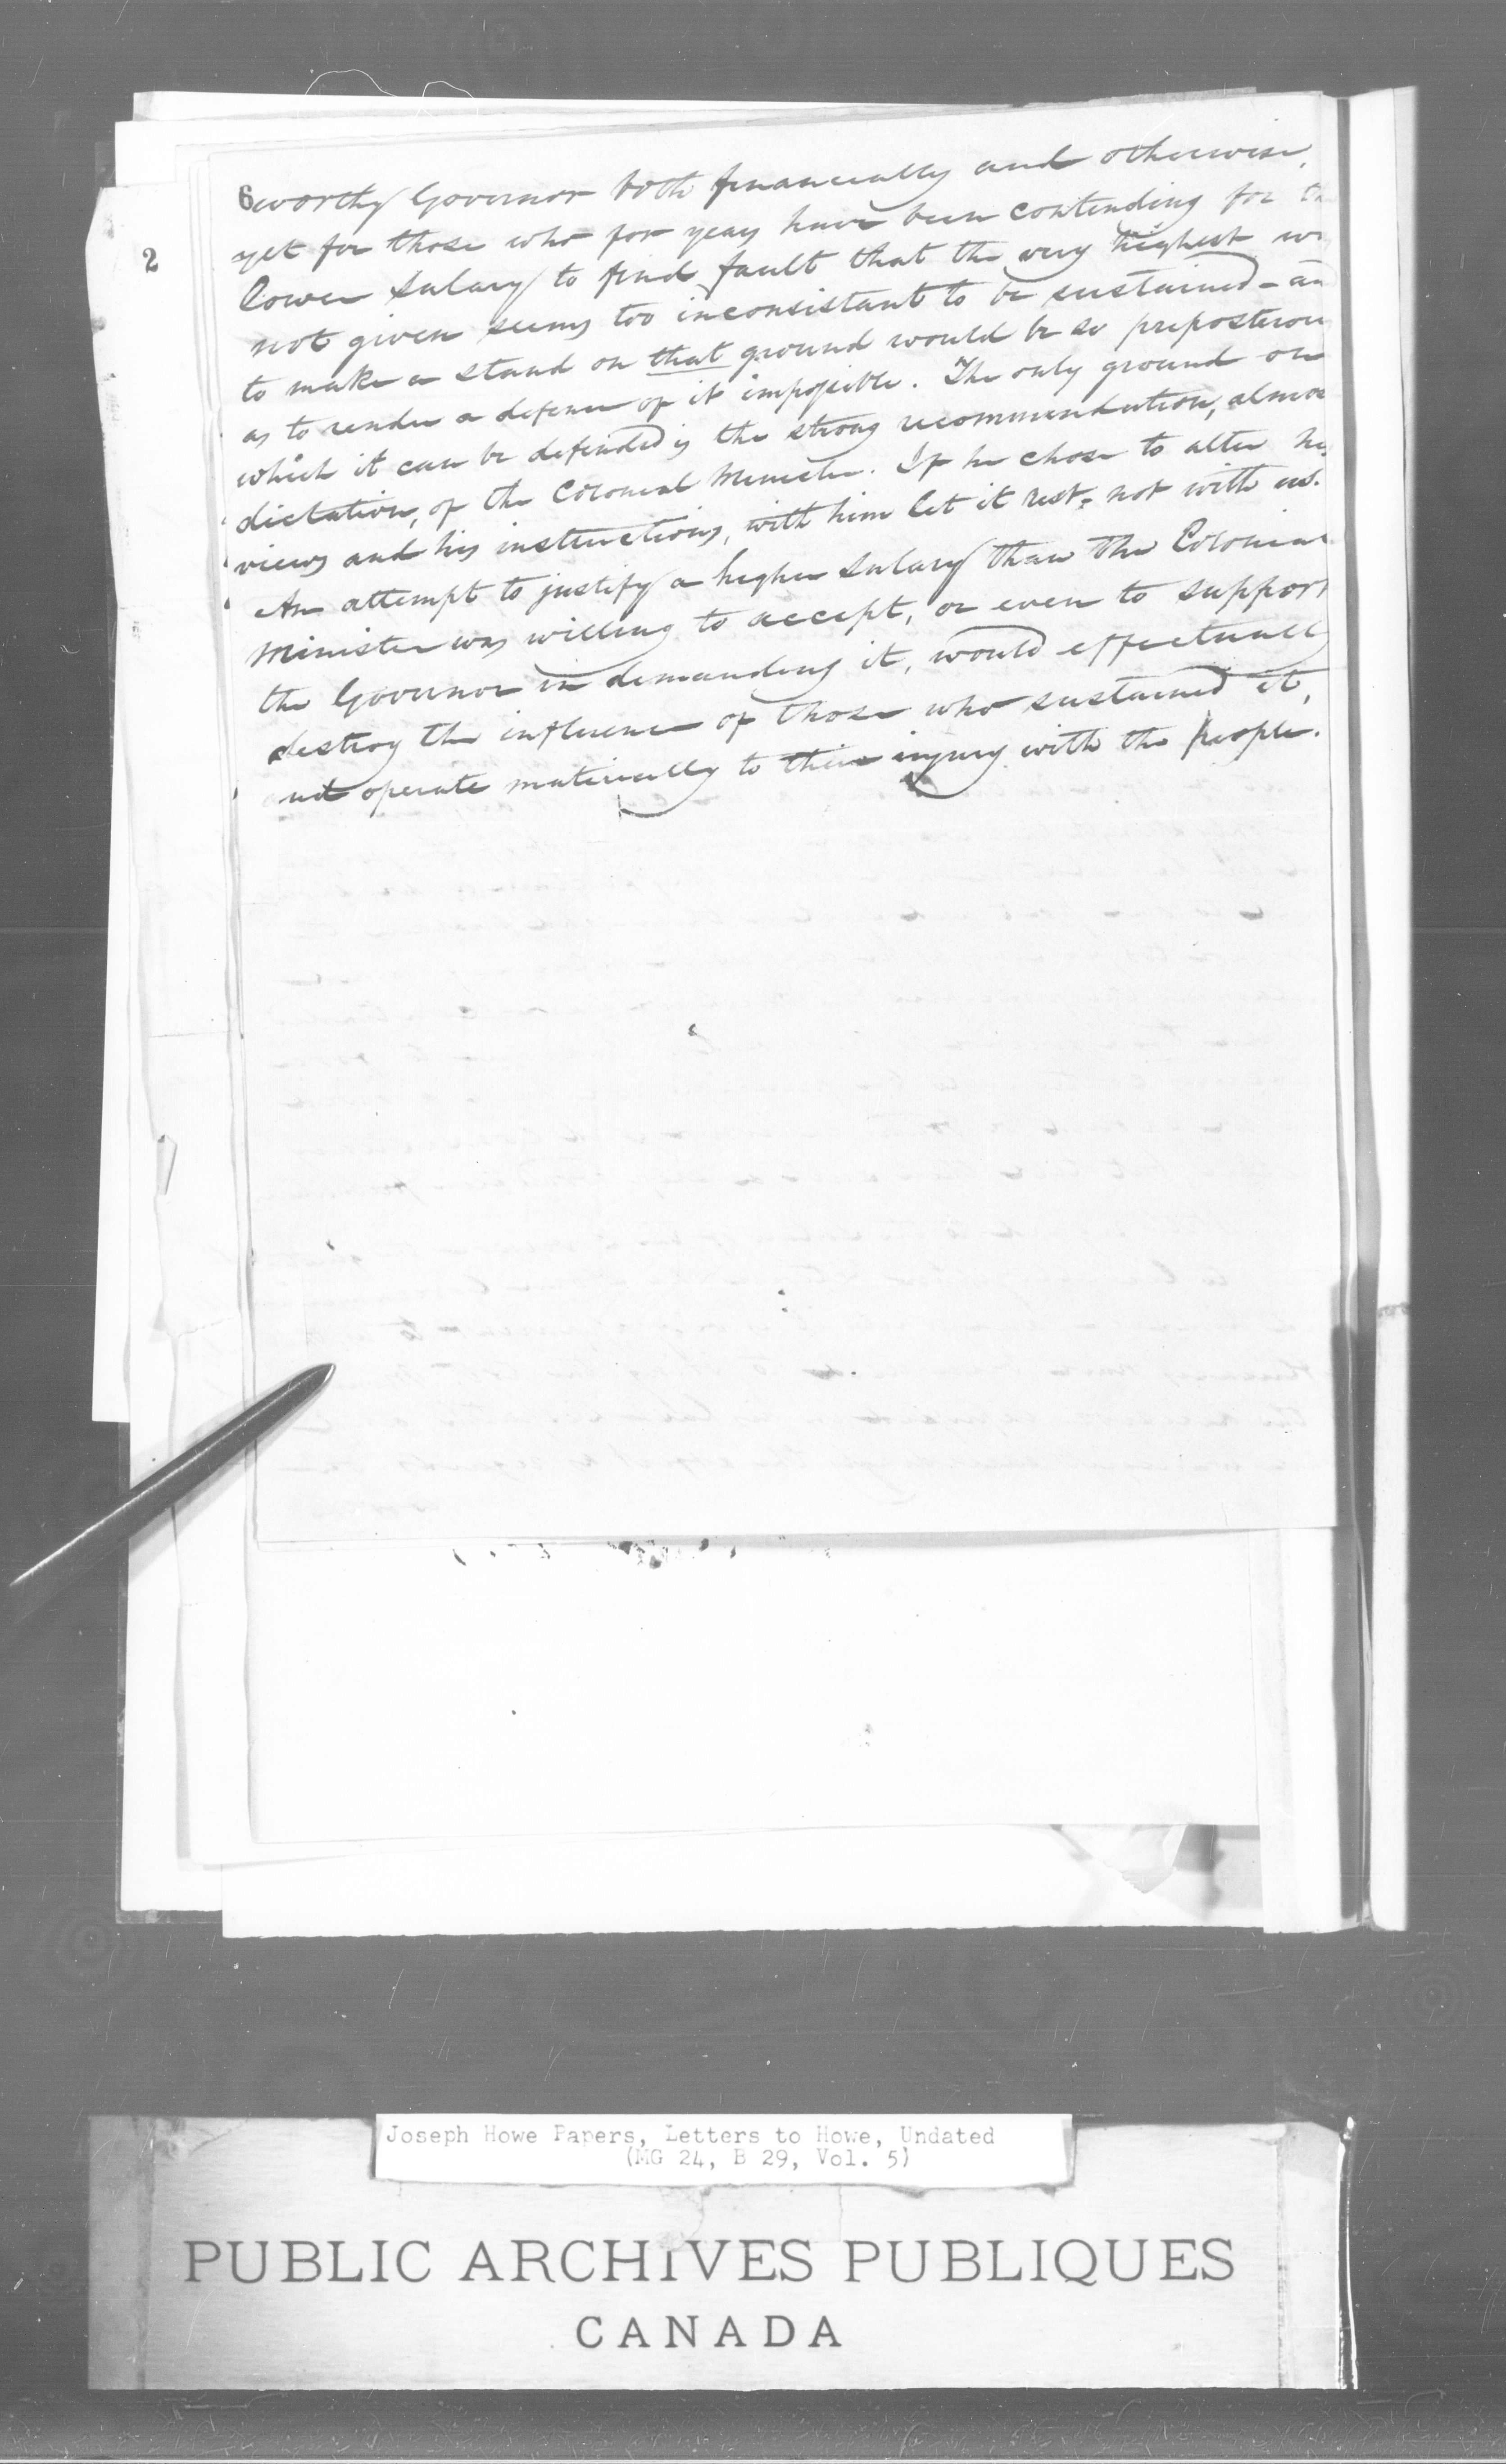 6
worthy Governor both financially and otherwise,
yet for those who for years have been contending for th
2
lower salary to find fault that the very highest w
not given seems too inconsistant to be sustained - an
to make a stand on that ground would be so preposterou
as to render a defence of it impossible. The only ground on
which it can be defended is the strong recommendation, almos
dictation, of the Colonial Minister. If he chose to alter his
views and his instructions, with him let it rest - not with us.
An attempt to justify a higher salary than the Colonial
Minister was willing to accept, or even to support
the Governor in demanding it, would effectuall
destroy the influence of those who sustained it,
and operate materially to their injury with the people.
Joseph Howe Papers, Letters to Howe, Undated
(MG 24, B 29, Vol. 5)
PUBLIC ARCHIVES PUBLIQUES
CANADA